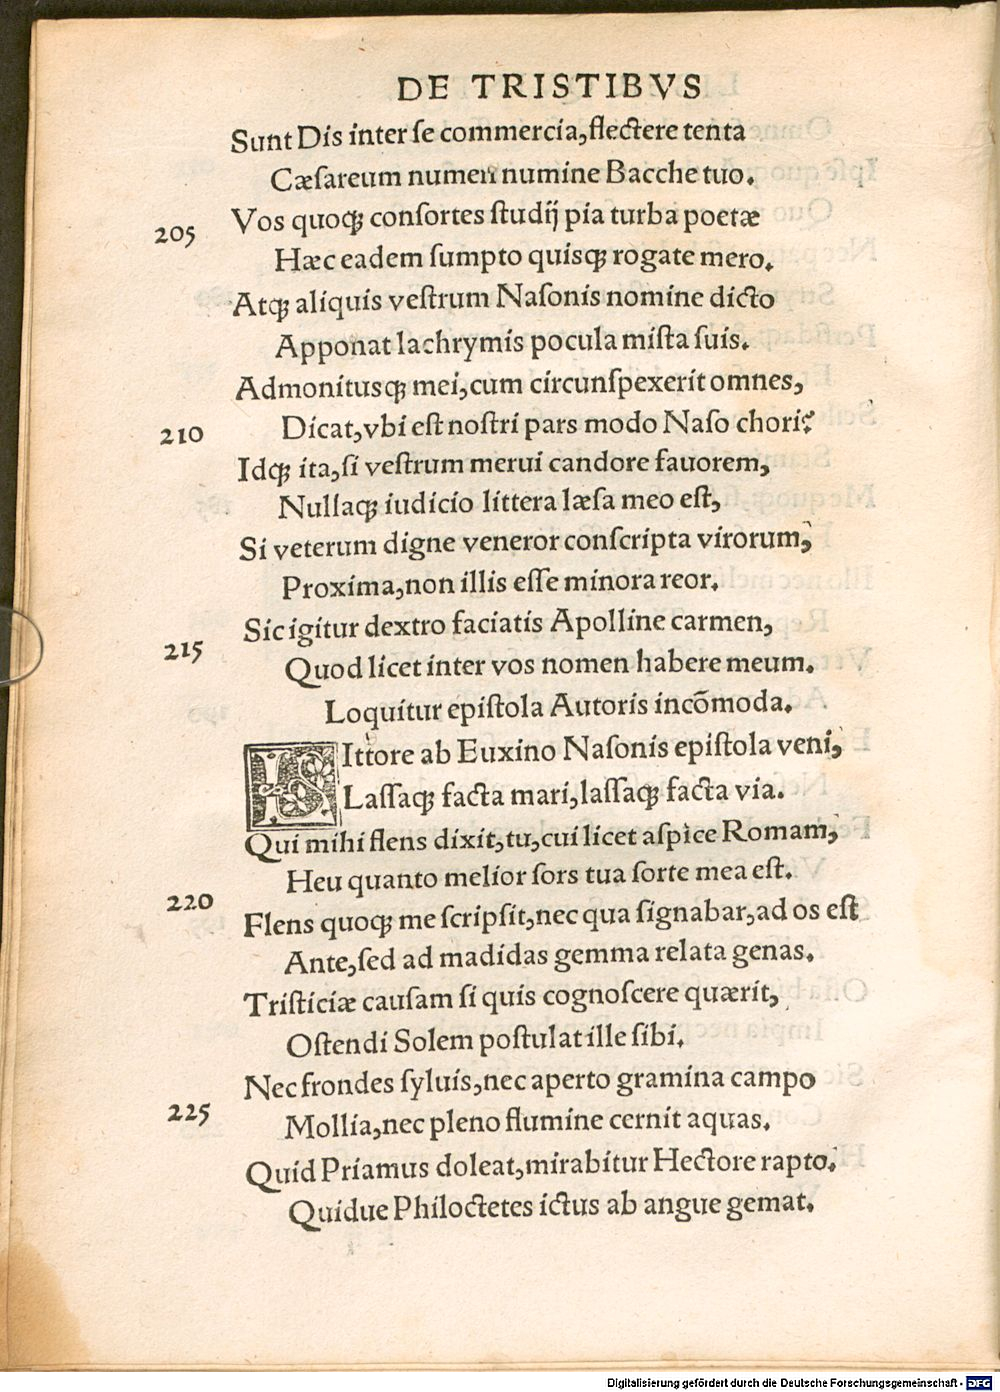 DE TRISTIBVS
Sunt Dis inter ſe commercia, flectere tenta
Cæſareum numen numine Bacche tuo.
205 Vos quoqꝫ conſortes ſtudij pia turba poetæ
Hæc eadem ſumpto quisqꝫ rogate mero.
Atqꝫ aliquis veſtrum Naſonis nomine dicto
Apponat lachrymis pocula miſta ſuis.
Admonitusqꝫ mei, cum circunſpexerit omnes,
210 Dicat, vbi eſt noſtri pars modo Naſo chori?
Idqꝫ ita, ſi veſtrum merui candore fauorem,
Nullaqꝫ iudicio littera læſa meo eſt,
Si veterum digne veneror conſcripta virorum,
Proxima, non illis eſſe minora reor.
215 Sic igitur dextro faciatis Apolline carmen,
Quod licet inter vos nomen habere meum.
Loquitur epiſtola Autoris incõmoda.
LIttore ab Euxino Naſonis epiſtola veni,
Laſſaqꝫ facta mari, laſſaqꝫ facta via.
Qui mihi flens dixit, tu, cui licet aſpice Romam,
220 Heu quanto melior ſors tua ſorte mea eſt.
Flens quoqꝫ me ſcripſit, nec qua ſignabar, ad os eſt
Ante, ſed ad madidas gemma relata genas.
Triſticiæ cauſam ſi quis cognoſcere quærit,
Oſtendi Solem poſtulat ille ſibi.
Nec frondes ſyluis, nec aperto gramina campo
225 Mollia, nec pleno flumine cernit aquas.
Quid Priamus doleat, mirabitur Hectore rapto.
Quidue Philoctetes ictus ab angue gemat.
Digitalisierung gefördert durch die Deutsche Forschungsgemeinschaft - DFG